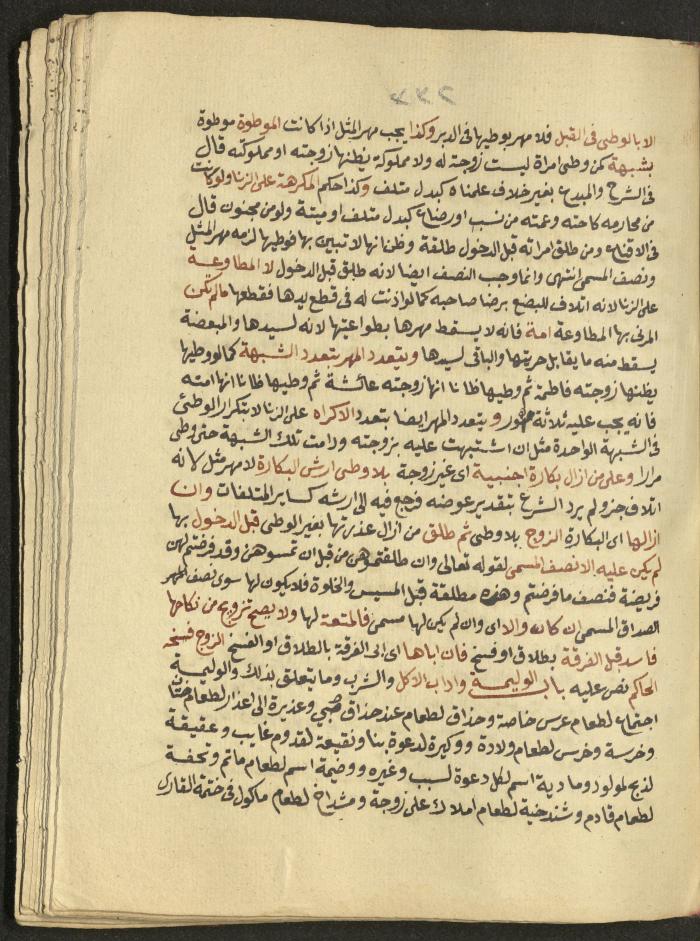 ٢٧٧
الا بالوطى فى القبل فلا مهر بوطيها فى الدبر وكذا يجب مهر المثل اذا كانت الموطوة موطوة
بشبهة كمن وطى امراة ليست زوجة له ولا مملوكة يظنها زوجته او مملوكته قال
فى الشرح والمبدع بغير خلاف علمناه كبدل متلف وكذا حكم المكرهة على الزنا ولو كانت
من محارمه كاخته وعمته من نسب او رضاع كبدل متلف او ميتة ولو من مجنون قال
فى الاقناع ومن طلق امراته قبل الدخول طلقة وظن انها لا تبين بها فوطيها لزمه مهر المثل
ونصف المسمى انتهى وانما وجب النصف ايضا لانه طلق قبل الدخول لا المطاوعة
على الزنا لانه اتلاف للبضع برضا صاحبه كما لو اذنت له فى قطع يدها فقطعها مالم تكن
المزنى بها المطاوعة امة فانه لا يسقط مهرها بطواعيتها لانه لسيدها والمبعضة
يسقط منه ما يقابل حريتها والباقى لسيدها ويتعدد المهر بتعدد الشبهة كما لو وطيها
يظنها زوجته فاطمة ثم وطيها ظانا انها زوجته عائشة ثم وطيها ظانا انها امته
فانه يجب عليه ثلاثة مهور و يتعدد المهر ايضا بتعدد الاكراه على الزنا لا بتكرار الوطئ
فى الشبهة الواحدة مثل ان اشتبهت عليه بزوجته ودامت تلك الشبهة حتى وطى
مرارا وعلى من ازال بكارة اجنبية اى غير زوجة بلا وطى ارش البكارة لا مهر مثل لانه
اتلاف جزء لم يرد الشرع بتقدير عوضه فرجع فيه الى ارشه كساير المتلفات وان
ازالها اى البكارة الزوج بلا وطى ثم طلق من ازال عذرتها بغير الوطى قبل الدخول بها
لم يكن عليه الا نصف المسمى لقوله تعالى وان طلقتموهن من قبل ان تمسوهن وقد فرضتم لهن
فريضة فنصف ما فرضتم وهذه مطلقة قبل المسيس والخلوة فلا يكون لها سوى نصف المهر
الصداق المسمى ان كان والا اى وان لم يكن لها مسمى فالمتعة لها ولا يصح تزويج من نكاحها
فاسد قبل الفرقة بطلاق او فسخ فان اباها اى ابى الفرقة بالطلاق او الفسخ الزوج فسخه
الحاكم نص عليه باب الوليمة واداب الاكل والشرب وما يتعلق بذلك والوليمة
اجتماع لطعام عرس خاصة وحذاق لطعام عند حذاق صبي وعذيرة الى اعذار لطعام ختان
وخرسة وخرس لطعام ولادة ووكيرة لدعوة بنا ونقيعة لقدوم غايب وعقيقة
لذبح لمولود ومادبة اسم لكل دعوة لسبب وغيره ووضيمة اسم لطعام ماتم وتحفة
لطعام قادم وشندخية لطعام املاك على زوجة ومشداخ لطعام ماكول فى ختمة القارى